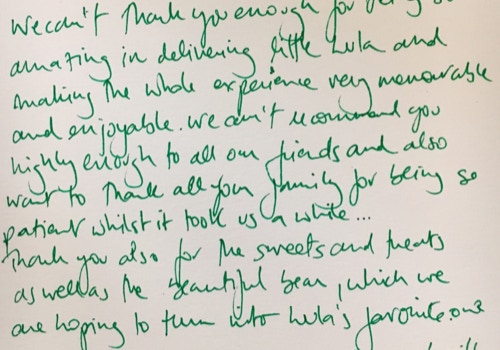 We can't thank you enough for being so
amazing in delivering little Lula and
making the whole experience very memorable
and enjoyable. We can't recommend you
highly enough to all our friends and also
want to thank all your family for being so
patient whilst it took us a while...
Thank you also for the sweets and treats
as well as the beautiful bear, which we
are hoping to turn into Lula's favorite one